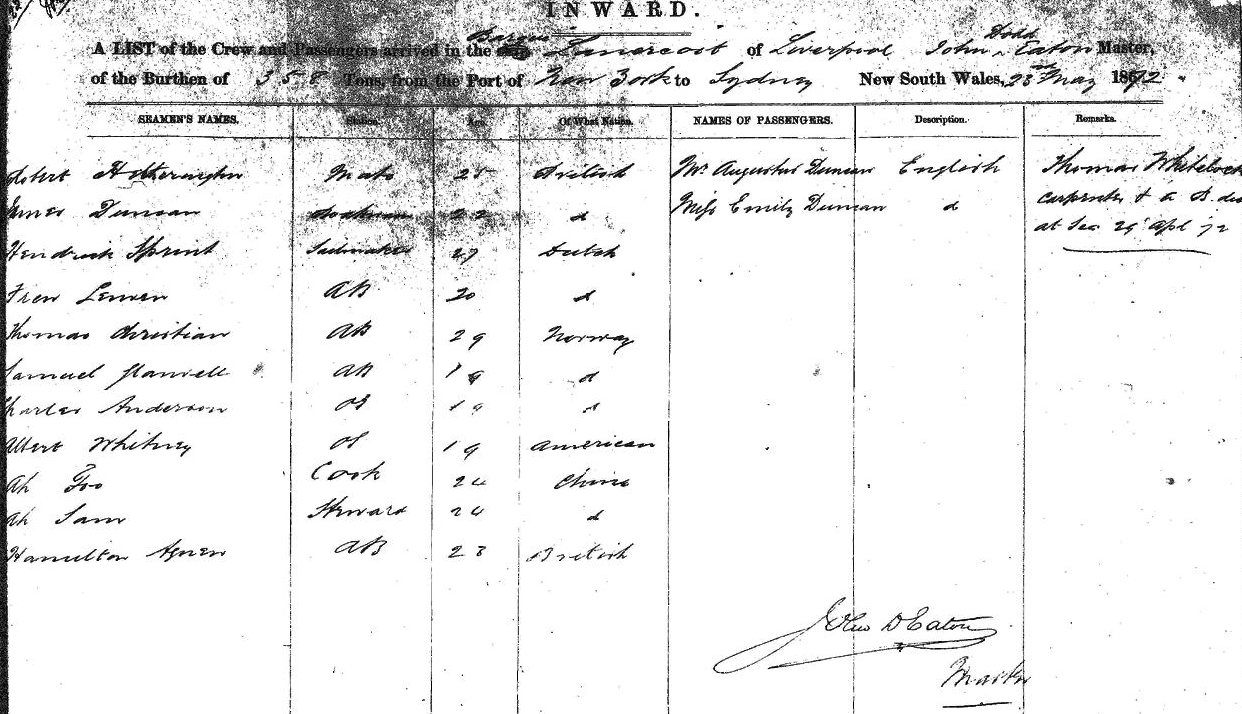 INWARD.
Barque Dodd
A LIST of the Crew and Passengers arrived in the Lanercost of Liverpool John Eaton Master,
of the Burthen of 358 Tons, from the Port of New York to Sydney New South Wales, 23rd May 1872
SEAMEN'S NAMES. Station. Age. Of What Nation. NAMES OF PASSENGERS. Description. Remarks.
Hetherington Mate British Mr Augustus Duncan English Thomas Whitelock
James Duncan 22 d Miss Emily Duncan d carpenter & a B
at Sea 29 Apl 72
Hendrick Sprint Sailmaker 27 Dutch
AB 20 d
Thomas Christian AB 29 Norway
Samuel AB 19 d
Charles Anderson OS 19 d
Albert Whitney OS 19 American
Ah Foo Cook 24 China
Ah Sam Steward 24 d
Hamilton Agnew AB 23 British
John D Eaton
Master